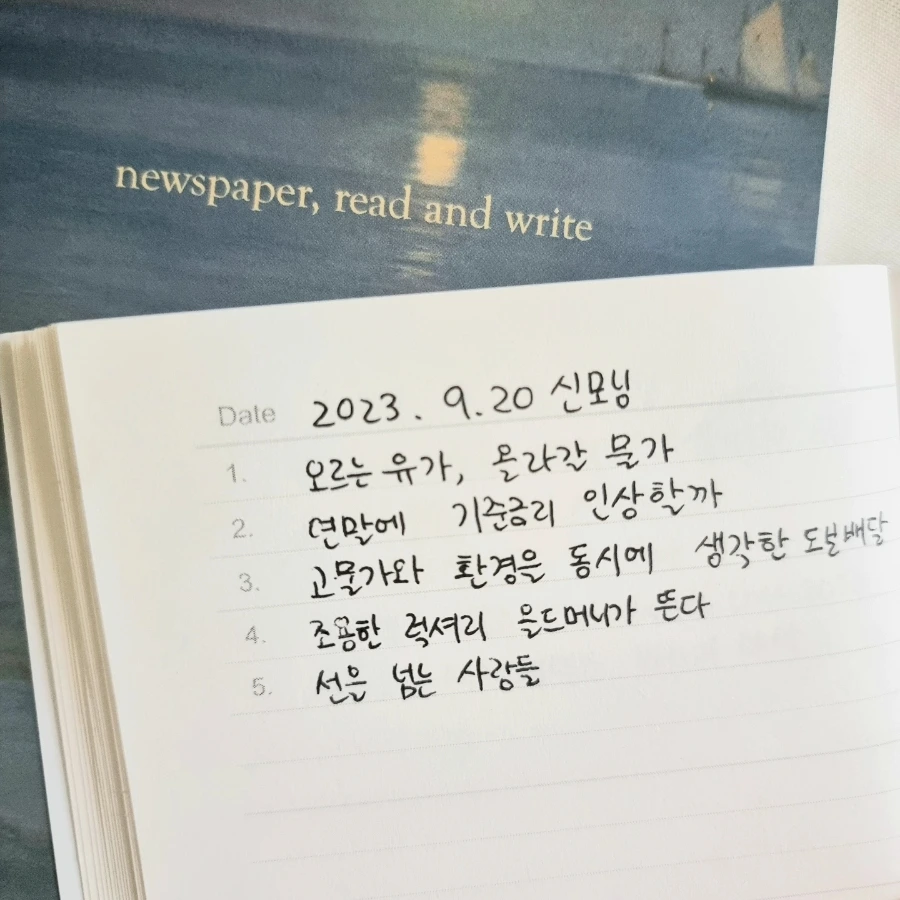 newspaper, read and write
Date 2023. 9. 20 신모닝
1. 오르는 유가, 올라간 물가
2. 연말에 기준금리 인상할까
3. 고물가와 환경을 동시에 생각한 도보배달
4. 조용한 럭셔리 올드머니가 뜬다
5. 선을 넘는 사람들